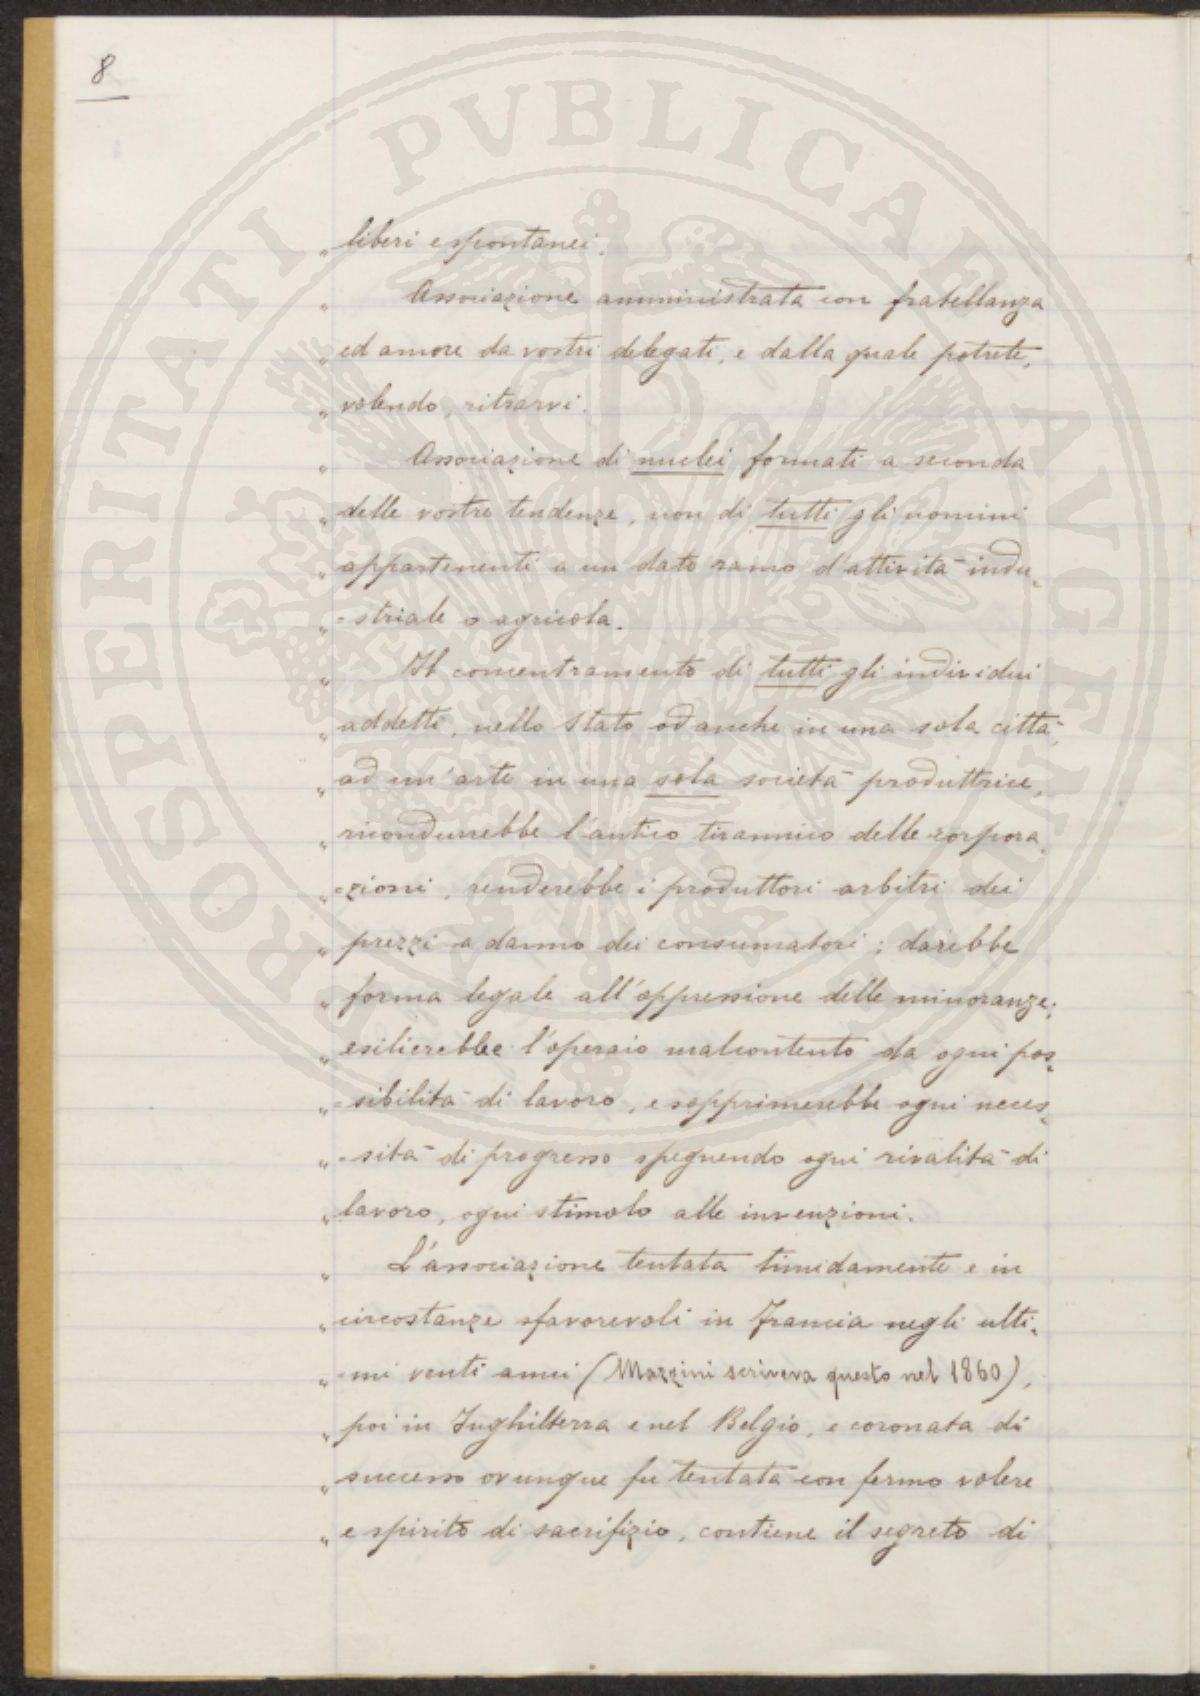 8
„ liberi e spontanei.
„ Associazione amministrata con fratellanza
„ ed amore da vostri delegati, e dalla quale potrete,
„ volendo, ritrarvi.
„ Associazione di nuclei formati a seconda
„ delle vostre tendenze, non di tutti gli uomini
„ appartenenti a un dato ramo d'attività indu-
„ -striale o agricola.
„ Il concentramento di tutti gli individui
„ addetti, nello Stato od anche in una sola città,
„ ad un'arte in una sola società produttrice,
„ ricondurrebbe l'antico tirannico delle corpora-
„ -zioni, renderebbe i produttori arbitri dei
„ prezzi a danno dei consumatori; darebbe
„ forma legale all'oppressione delle minoranze;
„ esilierebbe l'operaio malcontento da ogni pos-
„ -sibilità di lavoro, e sopprimerebbe ogni neces-
„ -sità di progresso spegnendo ogni rivalità di
„ lavoro, ogni stimolo alle invenzioni.
„ L'associazione tentata timidamente e in
„ circostanze sfavorevoli in Francia negli ulti-
„ -mi venti anni (Mazzini scriveva questo nel 1860),
„ poi in Inghilterra e nel Belgio, e coronata di
„ successo ovunque fu tentata con fermo volere
„ e spirito di sacrifizio, contiene il segreto di
PROSPERITATI PVBLICAE AVGENDAE